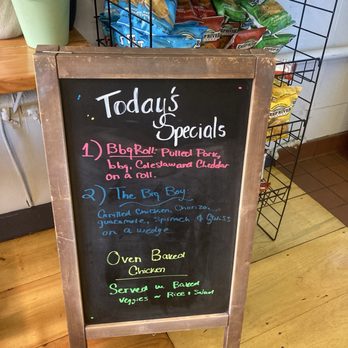 Today's
Specials
1) BBQ Roll: Pulled Pork,
bbq, Coleslaw and Cheddar
on a roll.
2) The Big Boy
Grilled Chicken, Chorizo,
guacamole, Spinach, & Swiss
on a wedge
Oven Baked
Chicken
Served w Baked
Veggies ~ Rice & Salad